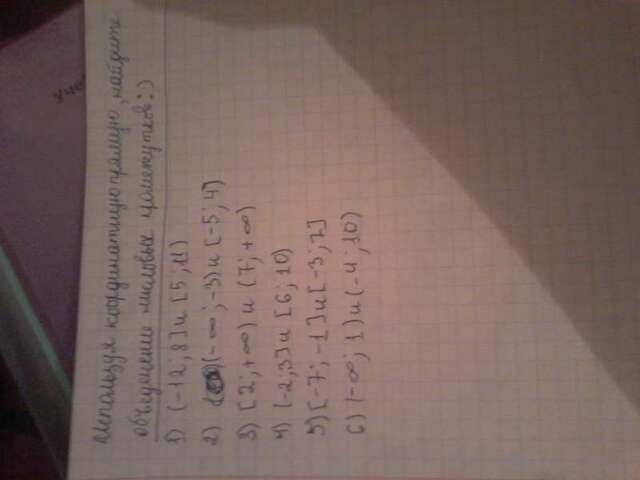 Используя координатную прямую, найдите
объединение числовых промежутков:)
1) (-12;8] и [5;11)
2) (-∞;-3) и [-5;4]
3) [2;+∞) и (7;+∞)
4) (-2;3] и [6;10)
5) [-7;-1] и [-3;2]
6) (-∞;1) и (-4;10)